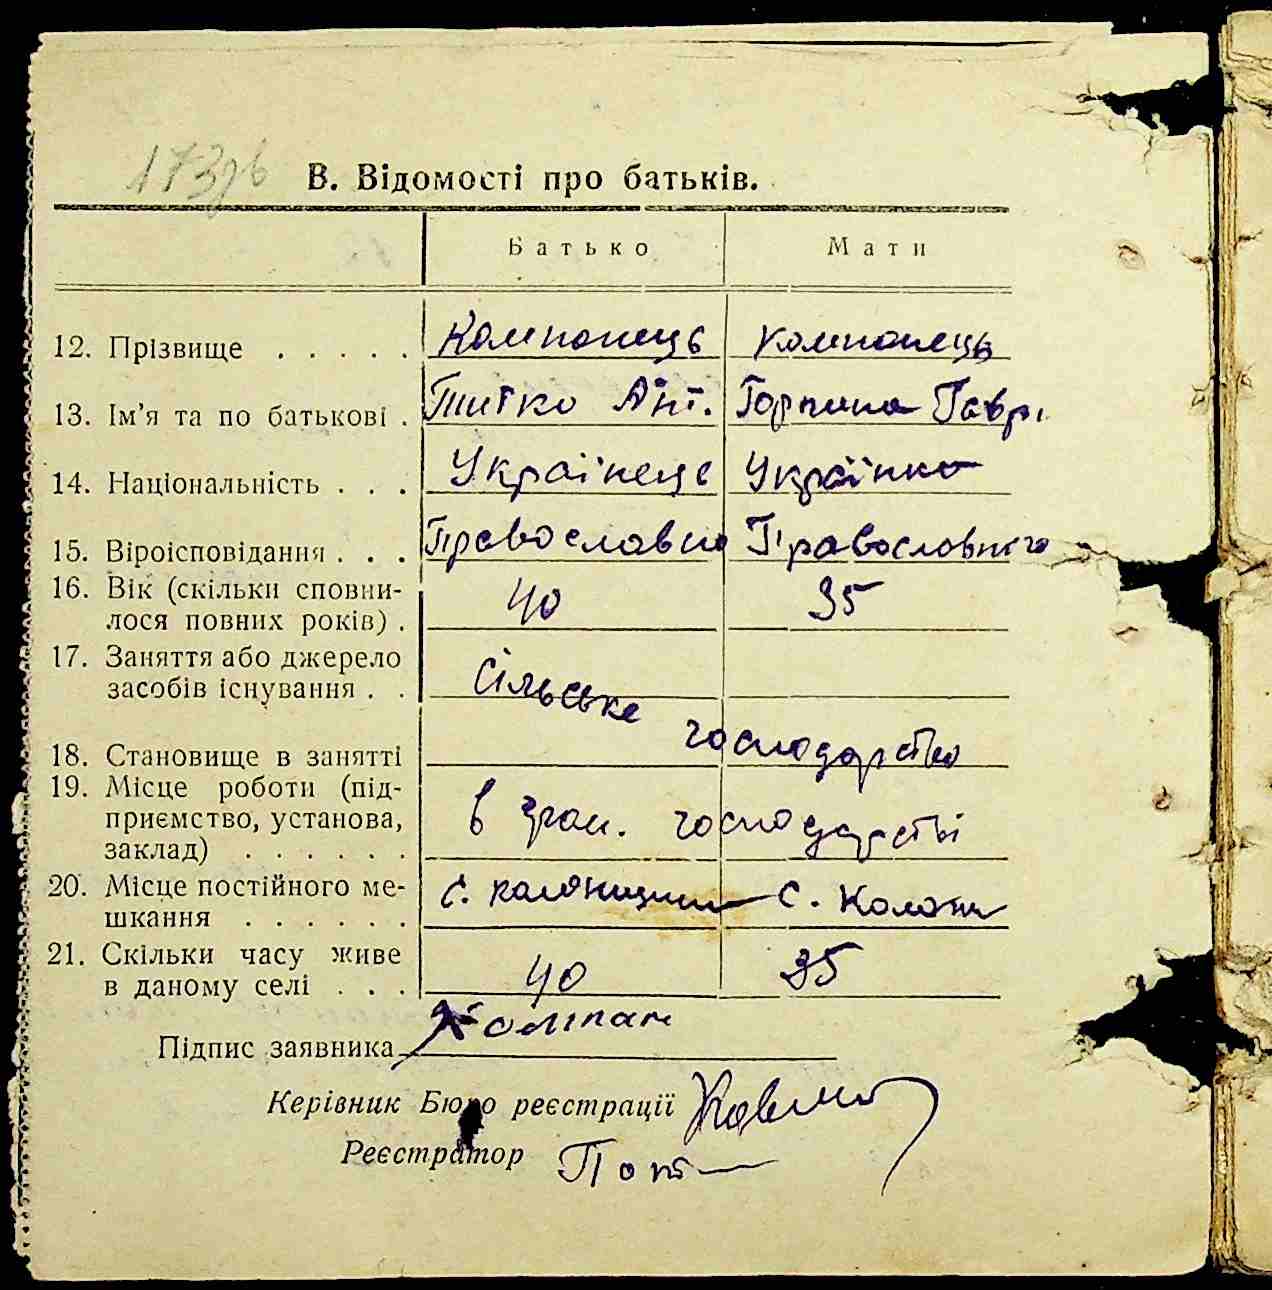 173зв
В. Відомості про батьків.
Батько Мати
12. Прізвище . . . . . Компонець Компонець
13. Ім'я та по батькові . Титко Ант. Горпина Гаврі
14. Національність . . . Українець Українка
15. Віроісповідання . . . Православно Православного
16. Вік (скільки сповни-
лося повних років) . 40 35
17. Заняття або джерело
засобів існування . . Сільське
18. Становище в занятті господарство
19. Місце роботи (під-
приємство, установа,
заклад) . . . . . . в гром. господарстві
20. Місце постійного ме-
шкання . . . . . . с. с. Колон
21. Скільки часу живе
в даному селі . . . 40 35
Підпис заявника Компан
Керівник Бюро реєстрації
Реєстратор